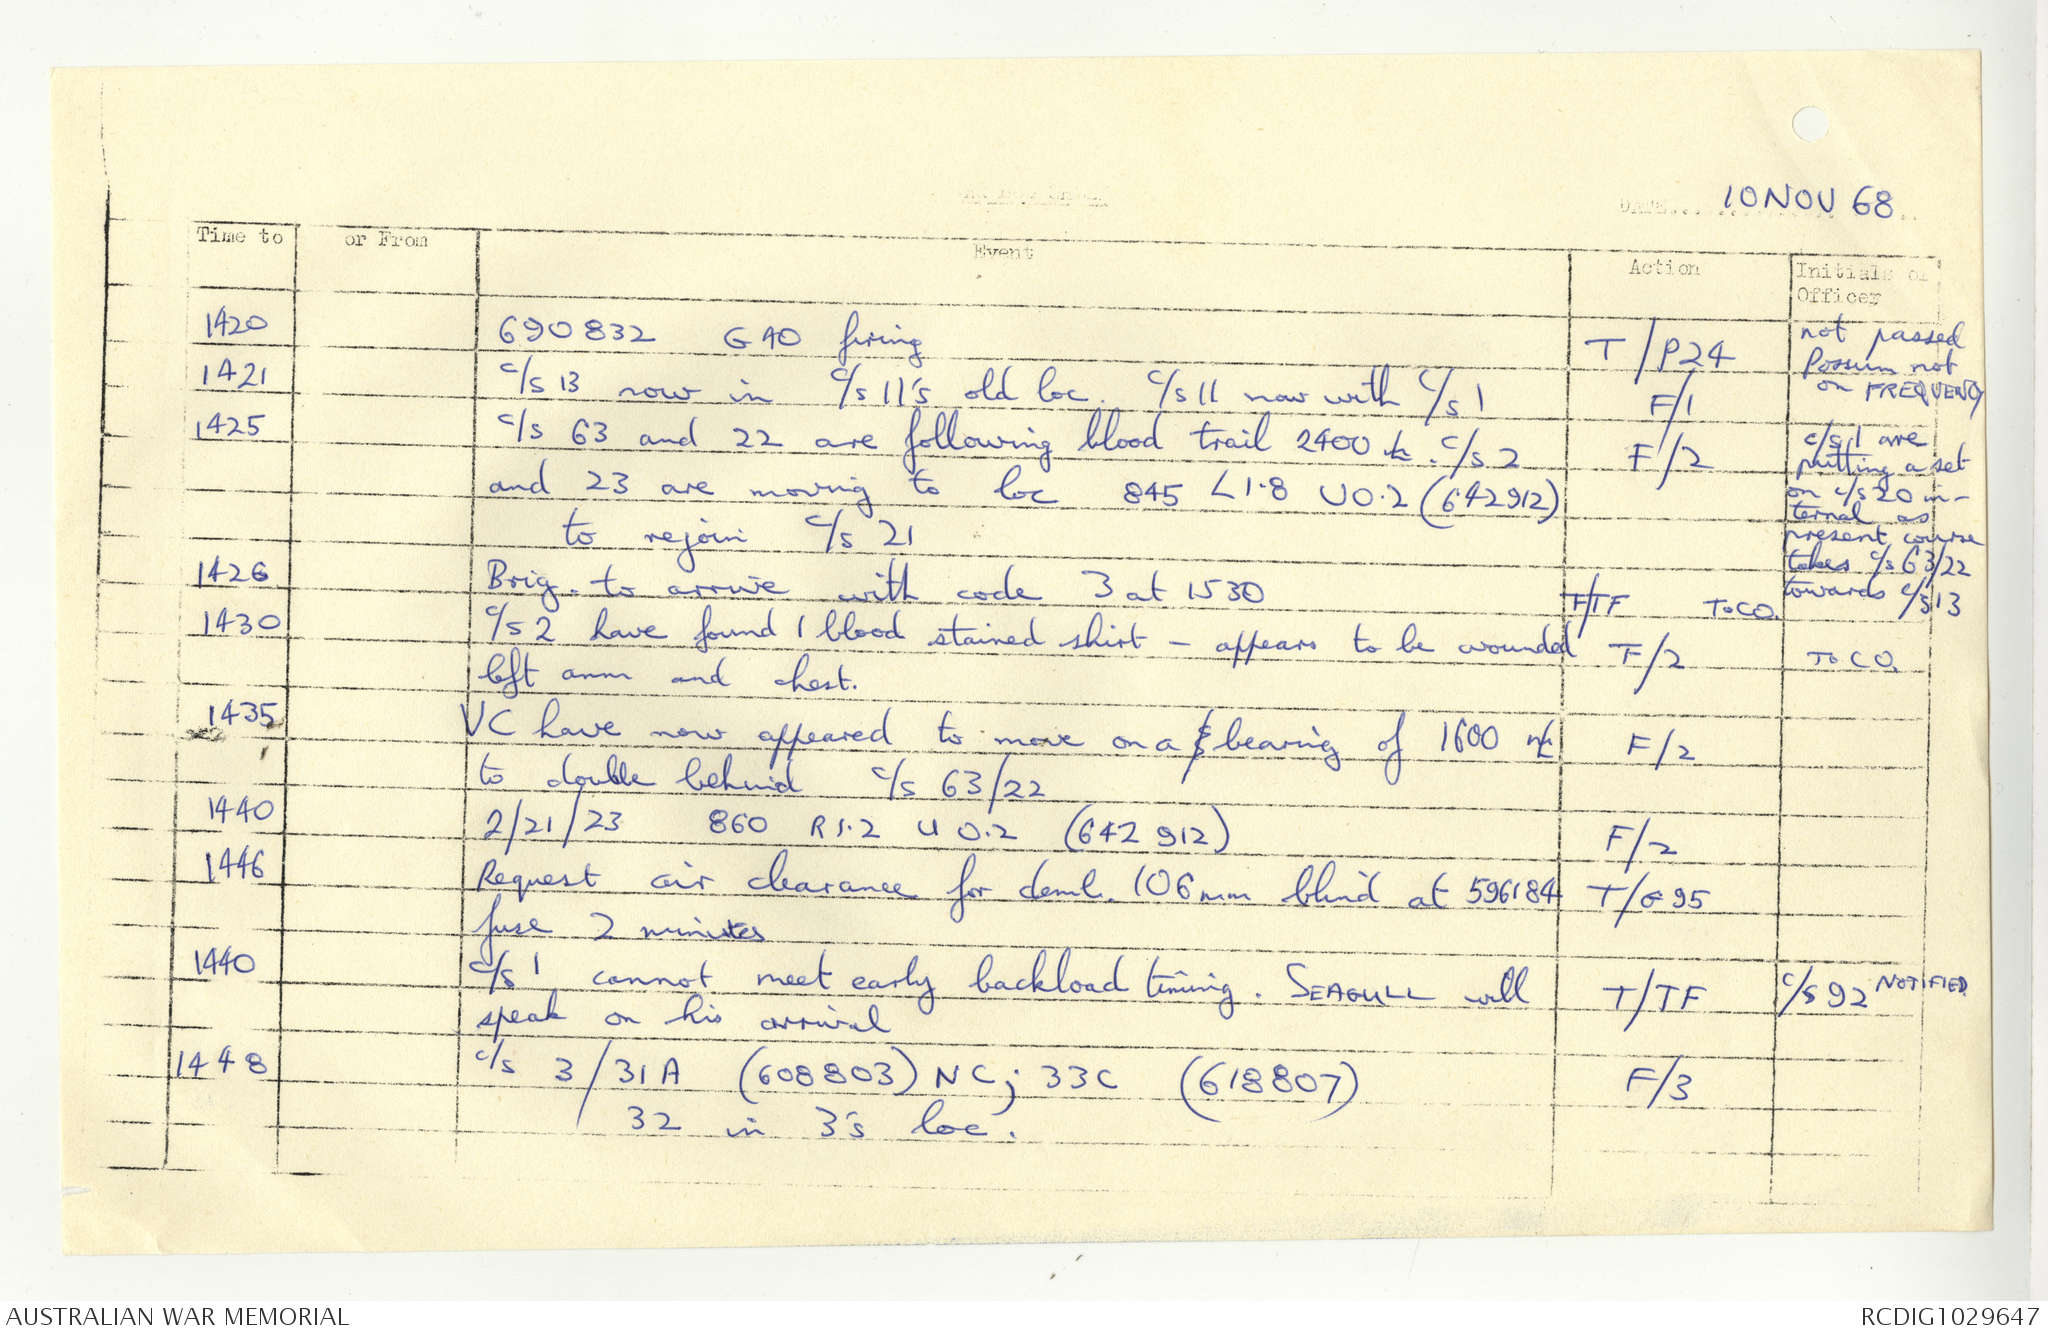 DATE 10 NOV 68
Time to or From Event Action Initials of
Officer
1420 690832 G40 firing T/P24 not passed
Possum not
on FREQUENCY
1421 c/s 13 now in c/s 11's old loc. c/s 11 now with c/s 1 F/1
1425 c/s 63 and 22 are following blood trail 2400 . c/s 2 F/2 c/s 1 are
putting a set
and 23 are moving to loc 845 L1.8 U0.2 (642912) on c/s 20 in-
ternal as
to rejoin c/s 21 present course
takes c/s 63/22
towards c/s 13
1426 Brig. to arrive with code 3 at 1530 F/TF To CO.
1430 c/s 2 have found 1 blood stained shirt - appears to be wounded F/2 To CO.
left arm and chest.
1435 VC have now appeared to move on a bearing of 1600 F/2
to double behind c/s 63/22
1440 2/21/23 860 R1.2 U0.2 (642912) F/2
1446 Request air clearance for deml. 106mm blind at 596184 T/G95
fuse 2 minutes
1440 c/s 1 cannot meet early backload timing. SEAGULL will T/TF c/s 92 NOTIFIED
speak on his arrival
1448 c/s 3/31A (608803) NC; 33C (618807) F/3
32 in 3's loc.
AUSTRALIAN WAR MEMORIAL RCDIG1029647